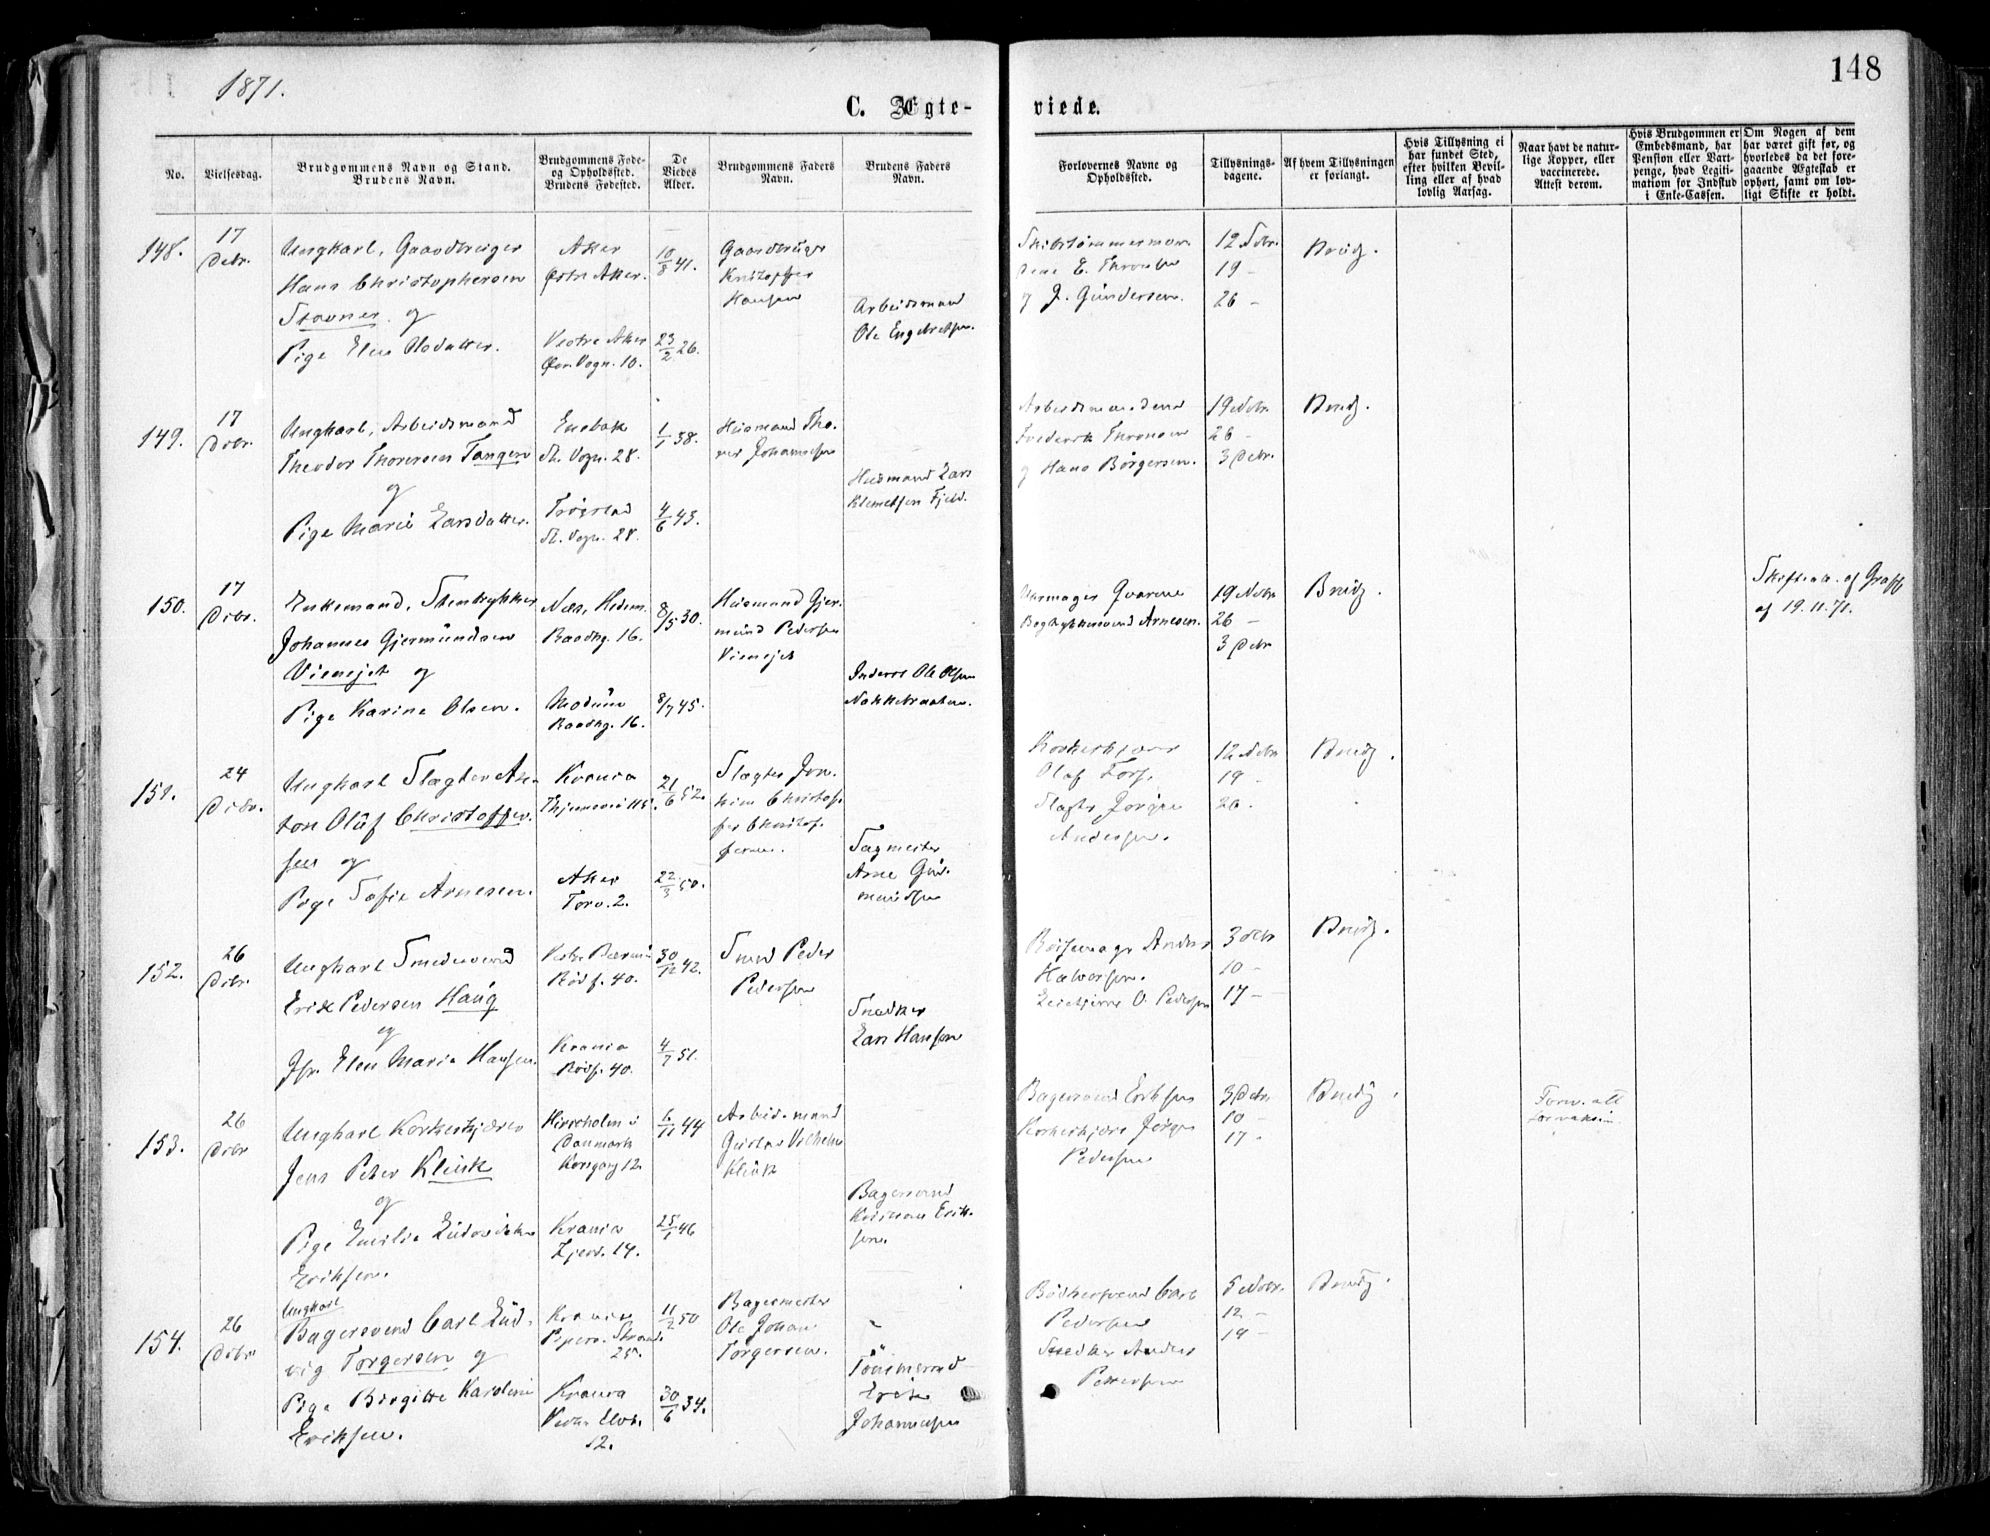 1871.
148
C. Ægte-
viede.
No.
Vielsesdag.
Brudgommens Navn og Stand.
Brudens Navn.
Brudgommens Føde-
og Opholdssted.
Brudens Fødested.
De
Viedes
Alder.
Brudgommens Faders
Navn.
Brudens Faders
Navn.
Forlovernes Navne og
Opholdssted.
Tillysnings-
dagene.
Af hvem Tillysningen
er forlangt.
Hvis Tillysning ei
har fundet Sted,
efter hvilken Bevil-
ling eller af hvad
lovlig Aarsag.
Naar havt de natur-
lige Kopper, eller
vaccinerede.
Attest derom.
Hvis Brudgommen er
Embedsmand, har
Pension eller Vart-
penge, hvad Legiti-
mation for Indskud
i Enke-Cassen.
Om Nogen af dem
har været gift før, og
hvorledes da det fore-
gaaende Ægteskab er
ophørt, samt om lov-
ligt Skifte er holdt.
148.
17
Debr.
Ungkarl, Gaardbruger
Hans Christophersen
Stovner og
Pige Elen Olsdatter.
Aker
Østre Aker.
Vestre Aker
Vogn. 10.
10/8 41.
23/2 26.
Gaardbruger
Kristoffer
Hansen
Arbeidsmand
Ole Engebretsen.
Skibstømmermæn
E. Thronsen
og J. Gundersen.
12 Nobr.
19 -
26 -
Brudg.
149.
17
Debr.
Ungkarl, Arbeidsmand
Theodor Thoresen Tangen
og
Pige Marie Larsdatter.
Enebak
St. Vogn. 28.
Trøgstad
St. Vogn. 28.
1/1 38.
4/6 43.
Husmand Tho-
res Johannesen
Husmand Lars
Klemetsen Fjeld.
Arbeidsmændene
Frederik Thronsen
og Hans Børgersen.
19 Nobr.
26 -
3 Debr.
Brudg.
150.
17
Debr.
Enkemand, Stenhykker
Johannes Gjermundsen
og
Pige Karine Olsen.
Næs, Hedem.
Raadhg. 16.
Modum
Raadhg. 16.
8/5 30.
8/7 45.
Husmand Gjer-
mund Pedersen
Inderst Ole Olsen
Uhrmager
Arnesen.
19 Nobr.
26 -
3 Debr
Brudg.
Skifteatt. af
af 19.11.71.
151.
24
Debr.
Ungkarl Slagter An-
ton Oluf Christoffer-
sen og
Pige Sofie Arnesen.
Krania
115.
Aker
Torv. 2.
21/6 52.
22/3 50.
Slagter
Christof-
fer Christof-
fersen.
Sagmester
Arne Gud-
mundsen
Olaf
Slagter Jørgen
Andersen.
12 Nobr
19 -
26.
Brudg.
152.
26
Debr.
Ungkarl Smedesvend
Erik Pedersen Haug
og
Jfr. Elen Marie Hansen.
Vestre Bærum
Rødf. 40.
Krania
Rødf. 40.
30/12 42.
4/7 51.
Smed Peder
Pedersen
Snedker
Lars Hansen
Bøssemager Anders
Halvorsen.
O. Pedersen
3 Debr
10 -
17 -
Brudg.
153.
26
Debr
Ungkarl Korkeskjærer
Jens Peter Klink
og
Pige Emilie
Eriksen.
i
Danmark
Korsgang 12.
Krania
14.
6/11 44
25/1 46
Arbeidsmand
Gustav Vilhelm
Klink
Bagersvend
Erik-
sen.
Bagersvend Eriksen
Korkeskjærer Jørgen
Pedersen
3 Debr
10 -
17 -
Brudg.
154.
26
Debr
Ungkarl
Bagersvend Carl Lud-
vig Torgersen og
Pige Birgitte Karoline
Eriksen.
Krania
Piperv. Strand.
25.
Krania
12.
11/2 50
30/6 34.
Bagermester
Ole Johan
Torgersen.
Johannesen
Bødkersvend Carl
Pedersen
Snedker Anders
Pettersen
5 Nobr.
12 -
19 -
Brudg.